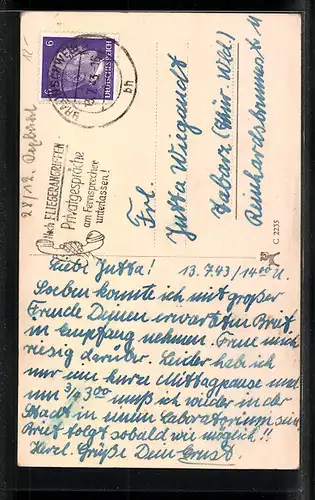 6
DEUTSCHES REICH
BRAUNSCHWEIG
bh
Nach FLIEGERANGRIFFEN
Privatgespräche
am Fernsprecher
unterlassen!
Frl.
Jutta Wiegandt
Tabarz (Thür. Wld)
Reinhardsbrunnerstr.
C 2235
Liebe Jutta! 13.7.43/14⁰⁰ U.
Soeben konnte ich mit großer
Freude Deinen erwarteten Brief
in Empfang nehmen. Freue mich
riesig darüber. Leider habe ich
nur eine kurze Mittagpause und
um 3/4 3⁰⁰ muß ich wieder in der
Stadt in einem Laboratorium sein
Brief folgt sobald wie möglich!!
Herzl. Grüße Dein Ernst.